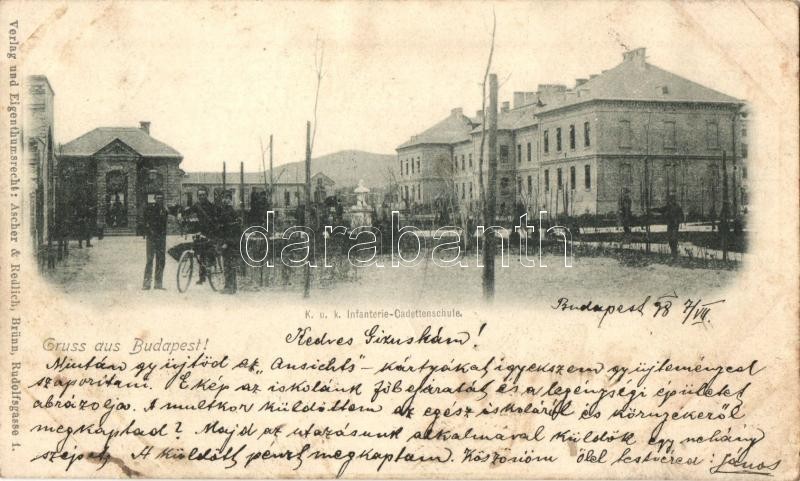 Verlag und Eigenthumsrecht: Ascher & Redlich, Brünn, Rudolfsgasse 1.
darabanth.com
K. u. k. Infanterie-Cadettenschule.
Gruss aus Budapest!
Budapest 98 7/VII
Kedves Gizuskám!
Miután gyüjtöd az "Ansichts"-kártyákat igyekszem gyüjteményed
szaporitani. E kép az iskolánk főbejáratát és a legénységi épületet
ábrázolja. A multkor küldöttem az egész iskoláról és környékéről
megkaptad? Majd az utazásunk alkalmával küldök egy néhány
szépet. A küldött pénzt megkaptam. Köszönöm ölel testvéred: János